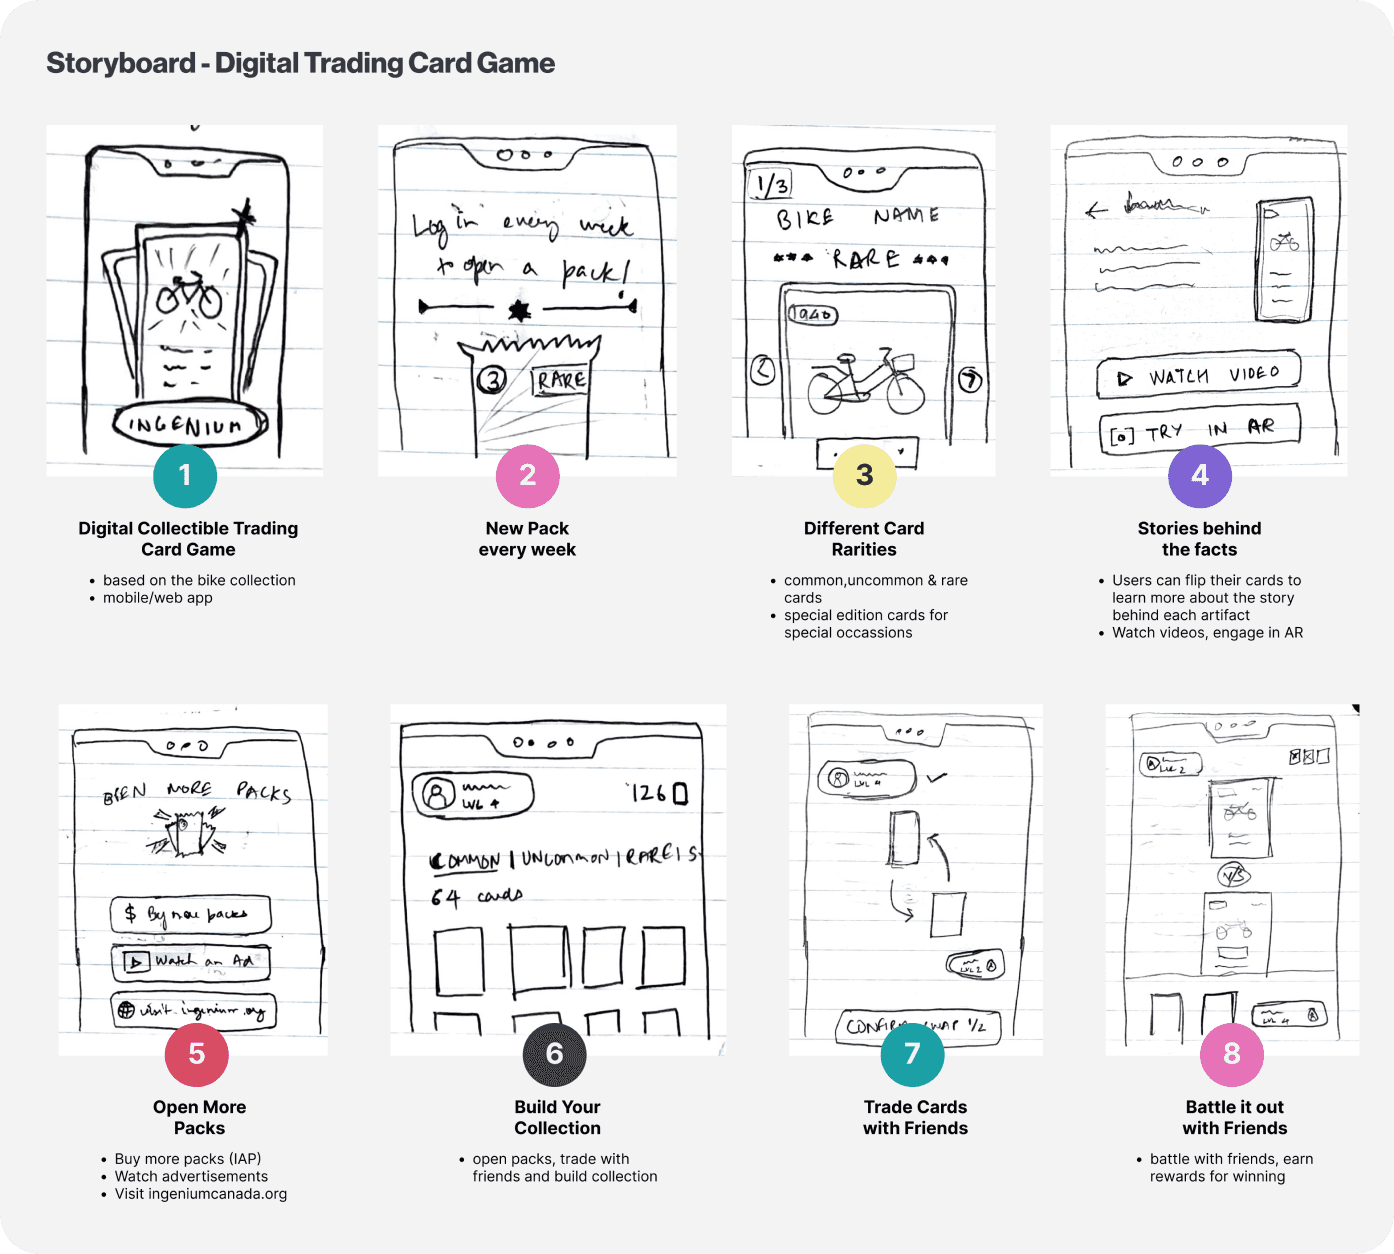 Storyboard - Digital Trading Card Game
INGENIUM
1
Digital Collectible Trading
Card Game
• based on the bike collection
• mobile/web app
Log in every week
to open a pack!
3
RARE
2
New Pack
every week
1/3
BIKE NAME
RARE
1940
3
Different Card
Rarities
• common,uncommon & rare
cards
• special edition cards for
special occassions
WATCH VIDEO
TRY IN AR
4
Stories behind
the facts
• Users can flip their cards to
learn more about the story
behind each artifact
• Watch videos, engage in AR
MORE PACKS
$ By more packs
Watch an Ad
visit ingenium.org
5
Open More
Packs
• Buy more packs (IAP)
• Watch advertisements
• Visit ingeniumcanada.org
LVL 4
126
COMMON | UNCOMMON | RARE | S
64 cards
6
Build Your
Collection
• open packs, trade with
friends and build collection
LVL 4
LVL 2
CONFIRM SWAP 1/2
7
Trade Cards
with Friends
LVL 2
V/S
LVL 4
8
Battle it out
with Friends
• battle with friends, earn
rewards for winning